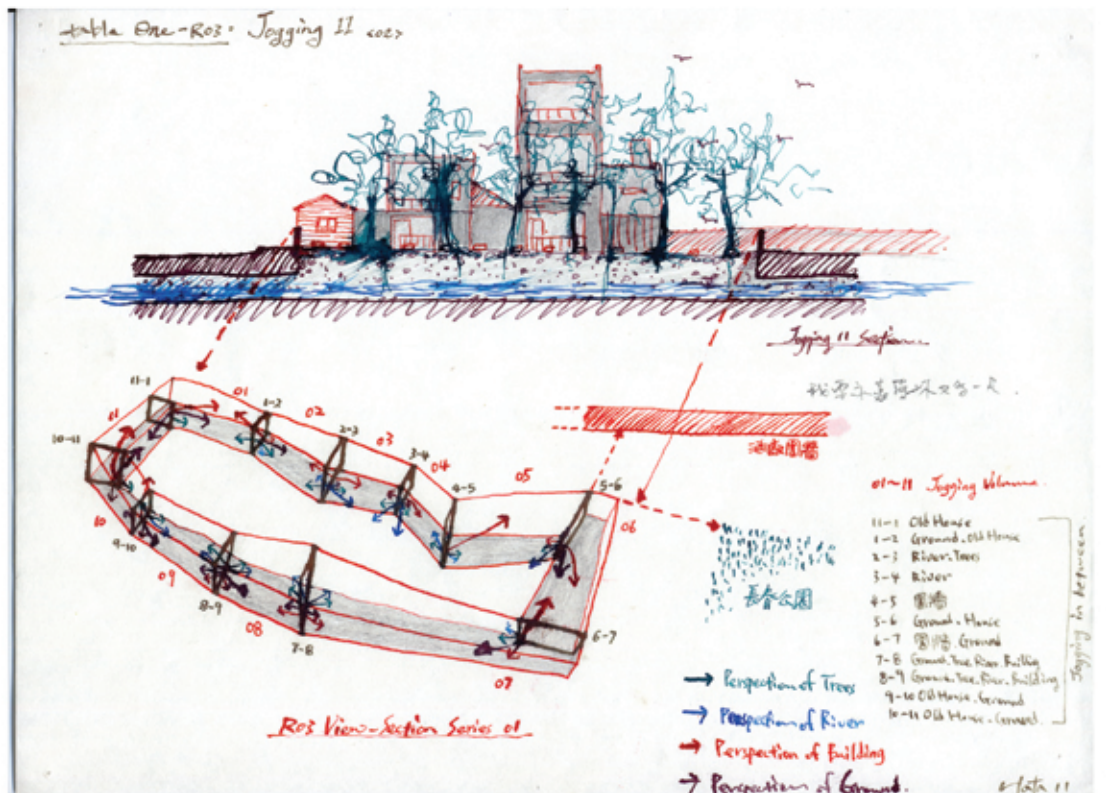 table One-R03: Jogging II <02>
Jogging 11 Section
11-1
01
1-2
02
2-3
03
3-4
04
4-5
05
5-6
06
6-7
07
7-8
08
8-9
09
9-10
10
10-11
11
圍牆
長春公園
R03 View-Section Series 01
01~11 Jogging Volume
11-1 Old House
1-2 Ground.Old House
2-3 River.Trees
3-4 River
4-5 圍牆
5-6 Ground.House
6-7 圍牆.Ground
7-8 Ground.Tree.River.Building
8-9 Ground.Tree.River.Building
9-10 Old House.Ground
10-11 Old House.Ground.
Jogging in between
Perspection of Trees
Perspection of River
Perspection of Building
Perspection of Ground.